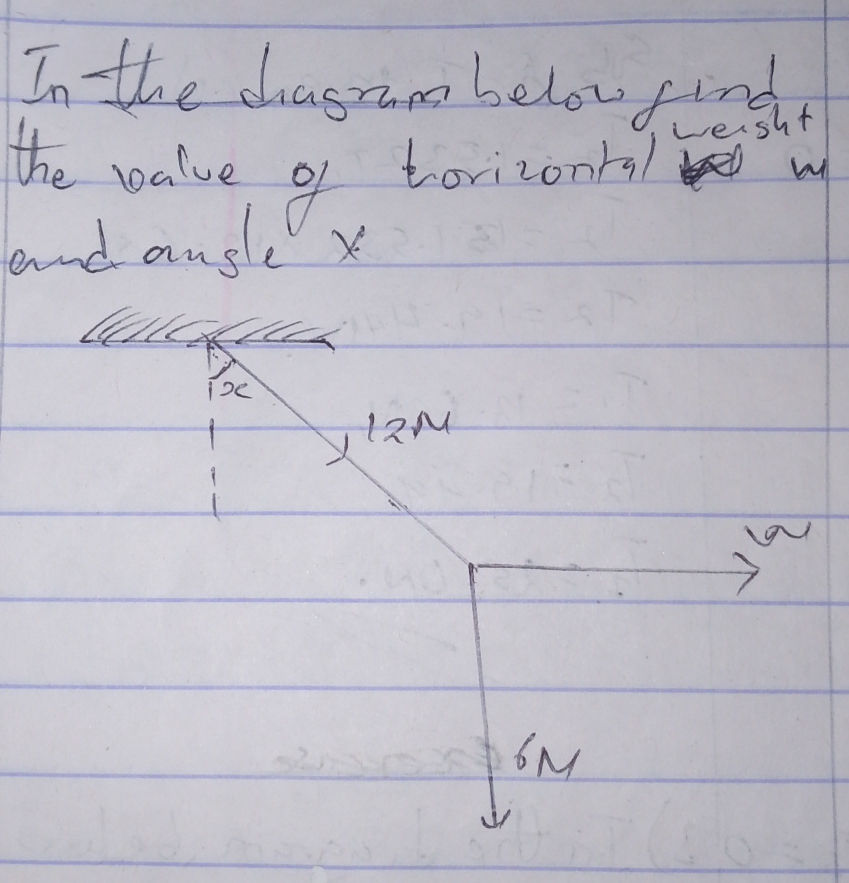 In the diagram below find
the value of horizontal weight w
and angle x
x
12N
w
6N